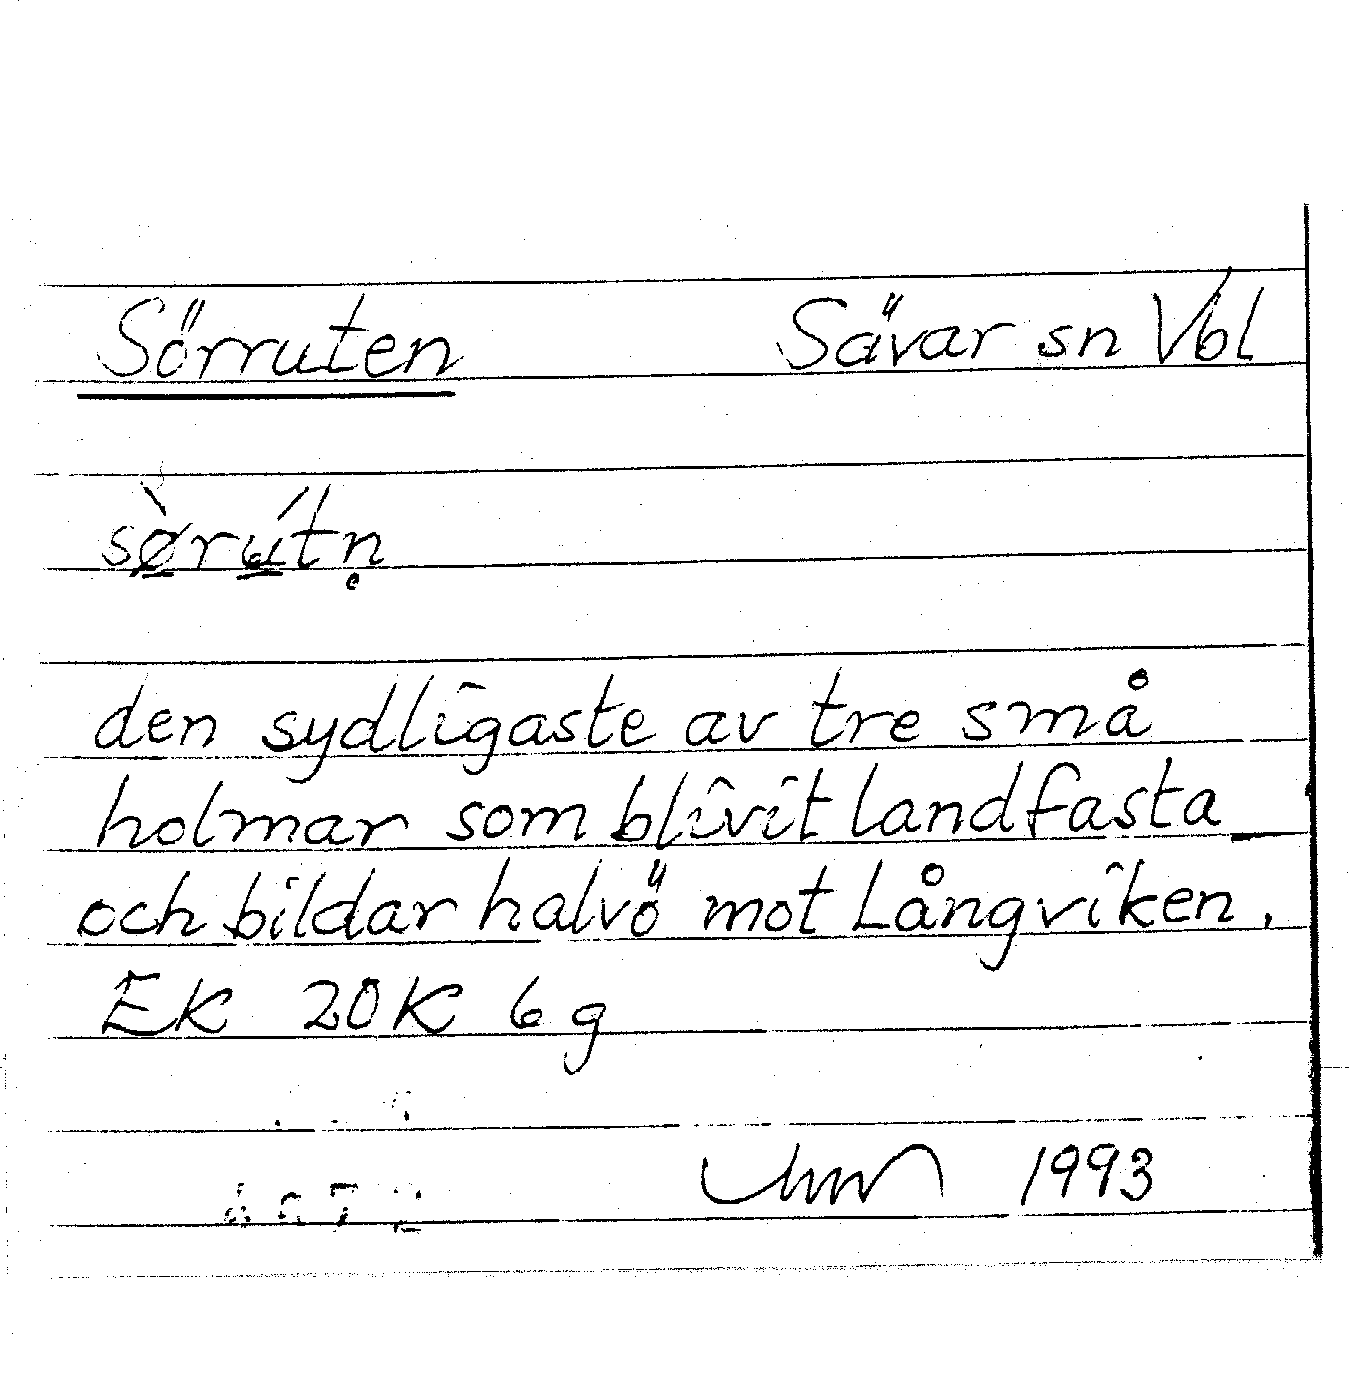 Sörruten Sävar sn Vbl
sø̀rútn̥
den sydligaste av tre små
holmar som blivit landfasta
och bildar halvö mot Långviken.
EK 20K 6g
1993